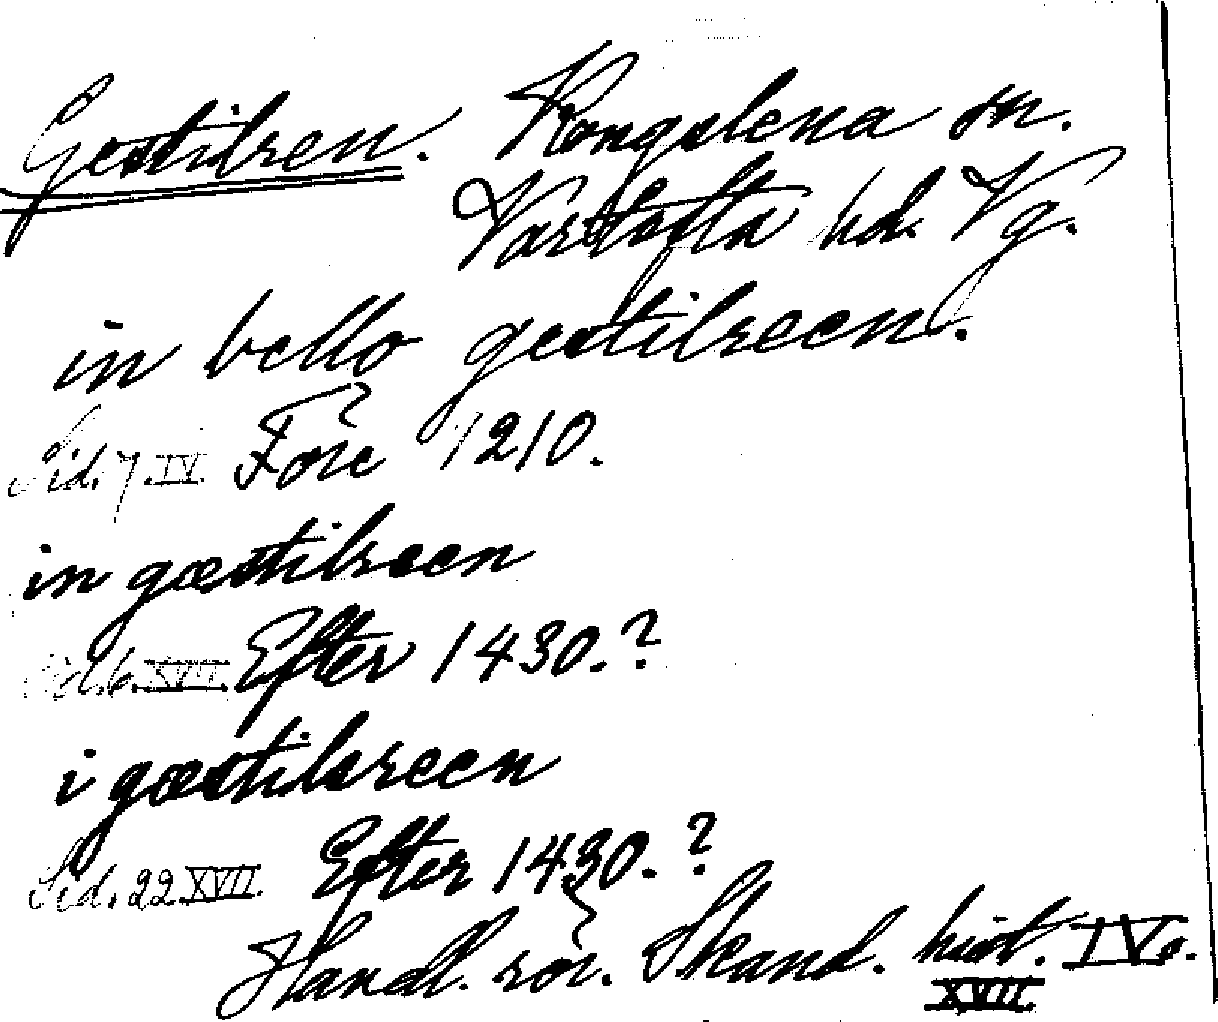 Gestilren. Kongslena sn.
Vartofta hd. Vg.
in bello gestilreen.
Sid. 7. IV. Före 1210.
in gæstilreen
Sid. 6. XVII. Efter 1430.?
i gæstilsreen
Sid. 22 XVII. Efter 1430.?
Handl. rör. Skand. hist. IV o.
XVII.